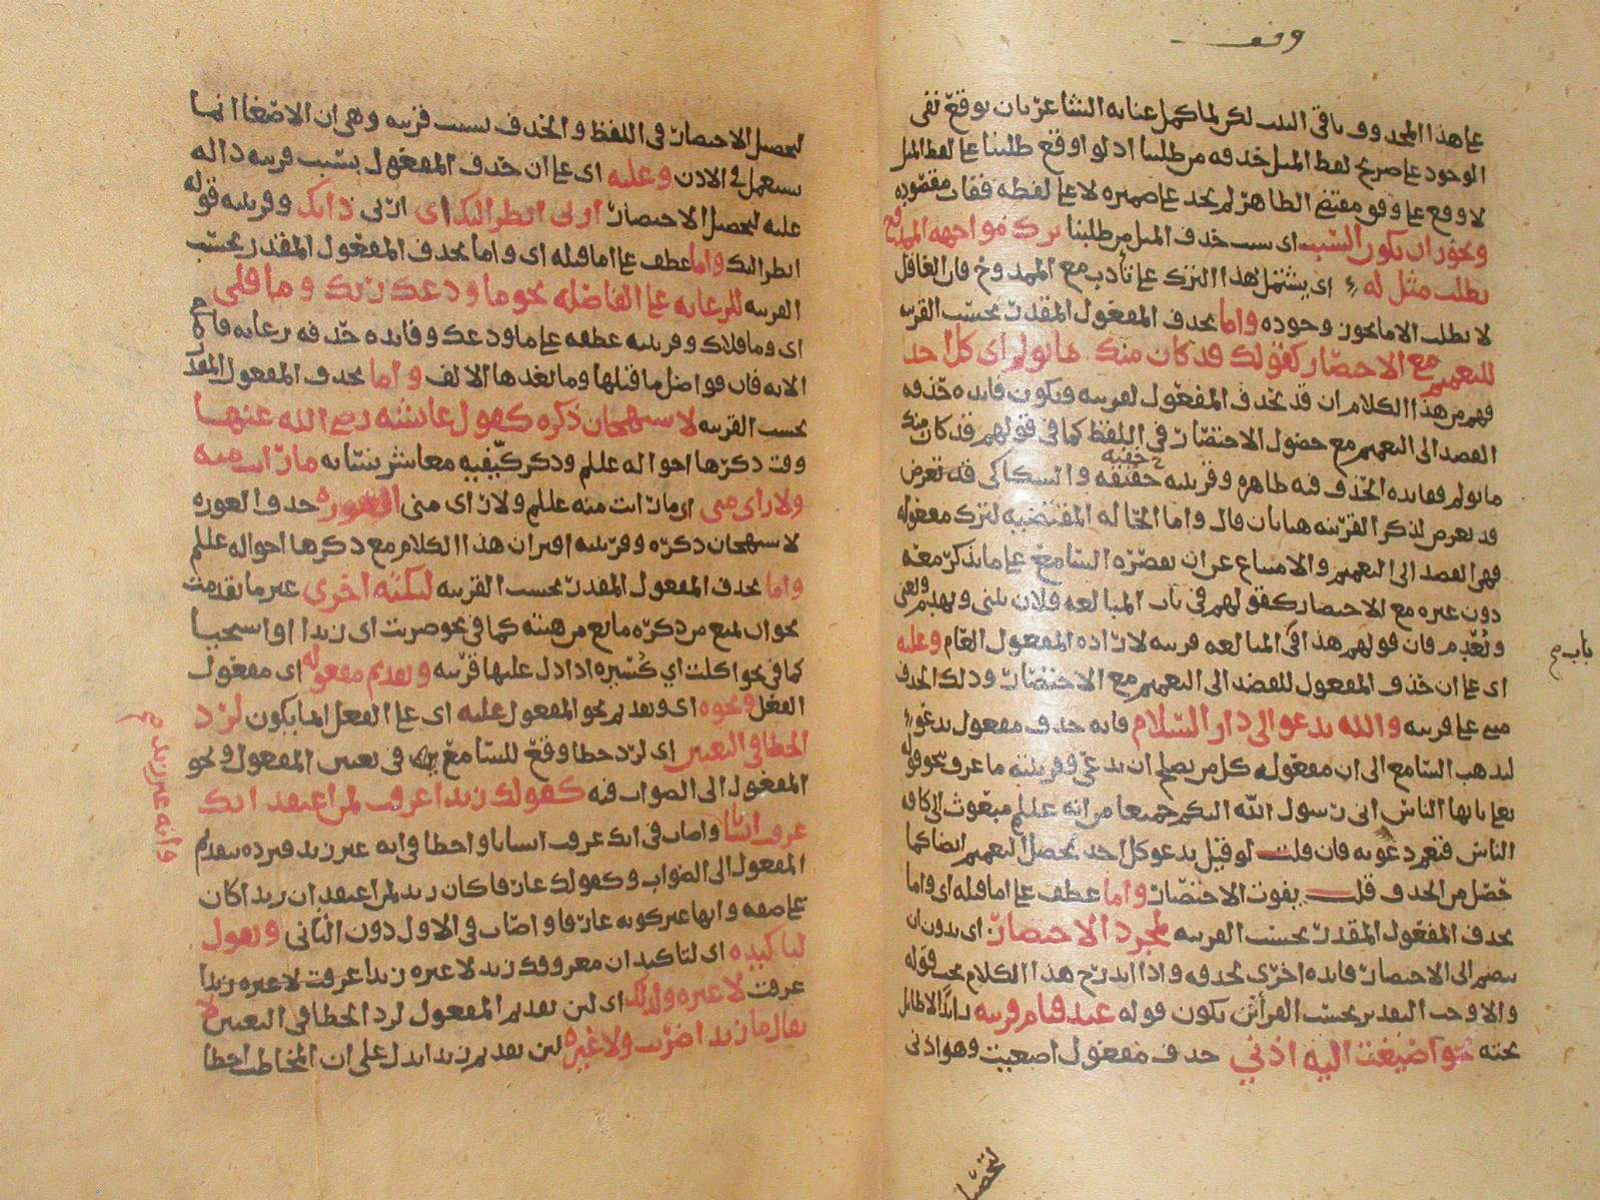 وقف
على هذا المحذوف باقي البيت لكن لما كمل عناية الشاعر بان يوقع نفي
الوجود على صريح لفظ المثل حذفه من طلبنا اذ لو اوقع طلبنا على لفظ المثل
لاوقع على وفق مقتضى الظاهر لم يجد على ضميره لا على لفظه ففات مقصوده
ويجوز ان يكون السبب اى سبب حذف المثل من طلبنا ترك مواجهه الممدوح
بطلب مثل له اى يشتمل هذا الترك على تأدب مع الممدوح فان العاقل
لا يطلب الا ما يجوز وجوده واما بحذف المفعول المقدر بحسب القرينه
للتعميم مع الاختصار كقولك قد كان منك ما يولم اى كل احد
فهم من هذا الكلام ان قد يحذف المفعول لقرينه ويكون فايده حذفه
القصد الى التعميم مع حصول الاختصار في اللفظ كما في قولهم قد كان منك
ما يولم ففايده الحذف فيه ظاهره وقرينته خفيه حقيقه والسكاكى
قد تعرض لذكر القرينه هنا بان قال واما الحاله المقتضيه لترك مفعوله
فهى القصد الى التعميم والامتناع عن ان يقصره السامع على ما يذكر معه
دون غيره مع الاختصار كقولهم في باب المبالغه فلان يبنى ويهدم
فان قولهم هذا في المبالغه قرينه لارادة المفعول العام وعليه
باب صح
اى على ان حذف المفعول للقصد الى التعميم مع الاختصار وذلك الحذف
مبنى على قرينه والله يدعو الى دار السلام فانه حذف مفعول يدعو
ليذهب السامع الى ان مفعوله كل من يصلح ان يدعى وقرينته ما عرف نحو قوله
تعا يايها الناس انى رسول الله اليكم جميعا من انه عللم مبعوث الى كافه
الناس فتعم دعوته فان قلت لو قيل يدعو كل احد يحصل التعميم ايضا كما
حصل من الحذف قلت يفوت الاختصار واما عطف على اما قبله اى واما
بحذف المفعول المقدر بحسب القرينه لمجرد الاختصار اى بدون ان
ينضم الى الاختصار فايده اخرى لحذفه واذا اندرج هذا الكلام تحت قوله
والا وجب التقدير بحسب القرائن يكون قوله عند قيام قرينه زائدا لا طائل
تحته نحو اصغيت اليه اذني حذف مفعول اصغيت وهو اذنى
لتحصيل
لتحصل الاختصار في اللفظ والحذف بسبب قرينه وهى ان الاصغا انما
يستعمل في الاذن وعليه اى على ان حذف المفعول بسبب قرينه داله
عليه لتحصيل الاختصار ارنى انظر اليك اى ارنى ذاتك وقرينته قوله
انظر اليك واما عطف على اما قبله اى واما بحذف المفعول المقدر بحسب
القرينه للرعايه على الفاصله نحو ما ودعك ربك وما قلى
اى وما قلاك وقرينته عطفه على ما ودعك وفايده حذفه رعايه فاصلة
الايه فان فواصل ما قبلها وما بعدها الالف واما بحذف المفعول المقدر
بحسب القرينه لاستهجان ذكره كقول عائشه رضى الله عنها
وقت ذكرها احواله عللم وذكر كيفيه معاشرتنا به ما رايت منه
ولا راى منى اى ما رايت منه عللم ولا راى منى العوره حذف العوره
لاستهجان ذكره وقرينته اقتران هذا الكلام مع ذكرها احواله عللم
واما بحذف المفعول المقدر بحسب القرينه لنكته اخرى غير ما تقدمت
نحو ان يمنع من ذكره مانع من هيبته كما في نحو ضربت اى زيدا او استحيا
كما في نحو اكلت اى كسيره اذا دل عليها قرينه وتقديم مفعوله اى مفعول
الفعل ونحوه اى وتقديم نحو المفعول عليه اى على الفعل انما يكون لرد
الخطا في التعيين اى لرد خطا وقع للسامع في تعيين المفعول ونحو
المفعول الى الصواب فيه كقولك زيدا عرفت لمن اعتقد انك
عرفت انسانا واصاب في انك عرفت انسانا واخطا في انه غير زيد فيرده بتقديم
وانه غير زيد صح
المفعول الى الصواب وكقولك عارفا كان زيد لمن اعتقد ان زيدا كان
على صفه وانها غير كونه عارفا واصاب في الاول دون الثانى وتقول
لتاكيده اى لتاكيد ان معروفك زيد لا غيره زيدا عرفت لا غيره زيدا
عرفت لا غيره ولذلك اى لين تقديم المفعول لرد الخطا في التعيين لا
يقال ما زيدا ضربت ولا غيره لين تقديم زيدا يدل على ان المخاطب اخطا